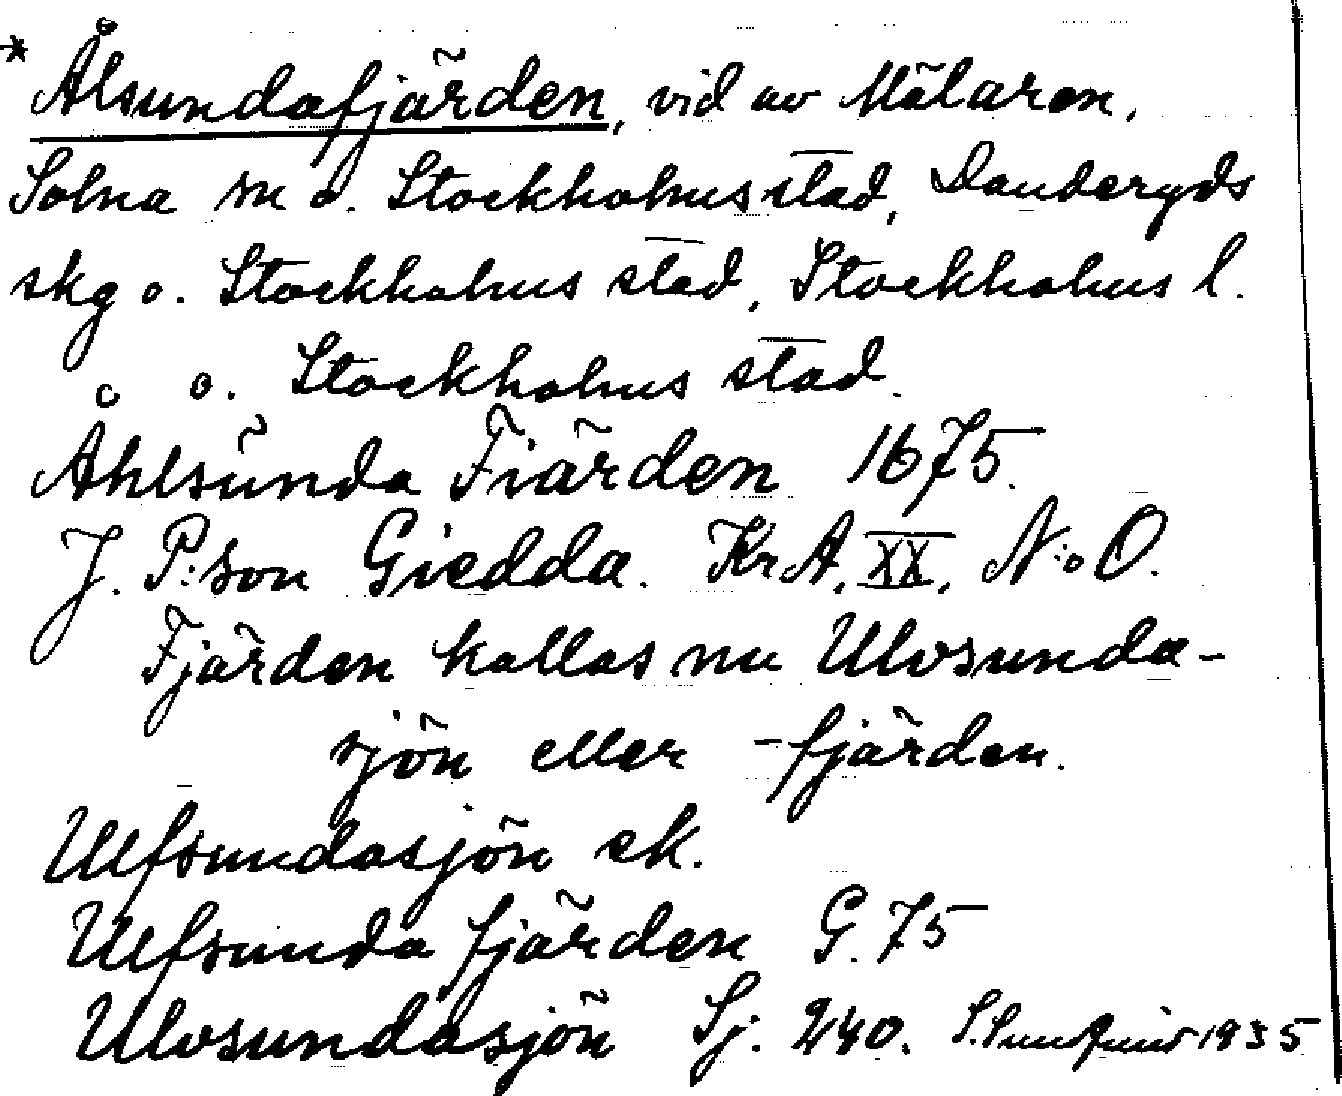 * Ålsundafjärden, vid av Mälaren,
Solna sn o. Stockholms stad, Danderyds
skg o. Stockholms stad, Stockholms l.
o. Stockholms stad.
Åhlsunda Fiärden 1675.
J. P:son Giedda. KrA, XX, N:o O.
Fjärden kallas nu Ulvsunda-
sjön eller -fjärden.
Ulfsundasjön ek.
Ulfsunda fjärden G. 75
Ulvsundasjön Sj. 240. 1935